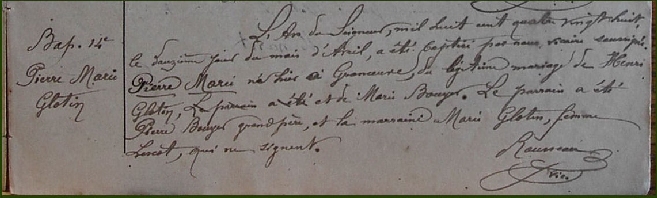 Bap. 14e
Pierre Marie
Glotin
L'An du Seigneur, mil huit cent quatre vingt huit,
le douzième jour du mois d'Avril, a été baptisé par nous, vicaire soussigné,
Pierre Marie né hier à du légitime mariage de Henri
Glotin, Le parrain a été et de Marie Bouyer. Le parrain a été
Pierre Bouyer grand père, et la marraine Marie Glotin, femme
qui ne signent.
Rousseau
vic.